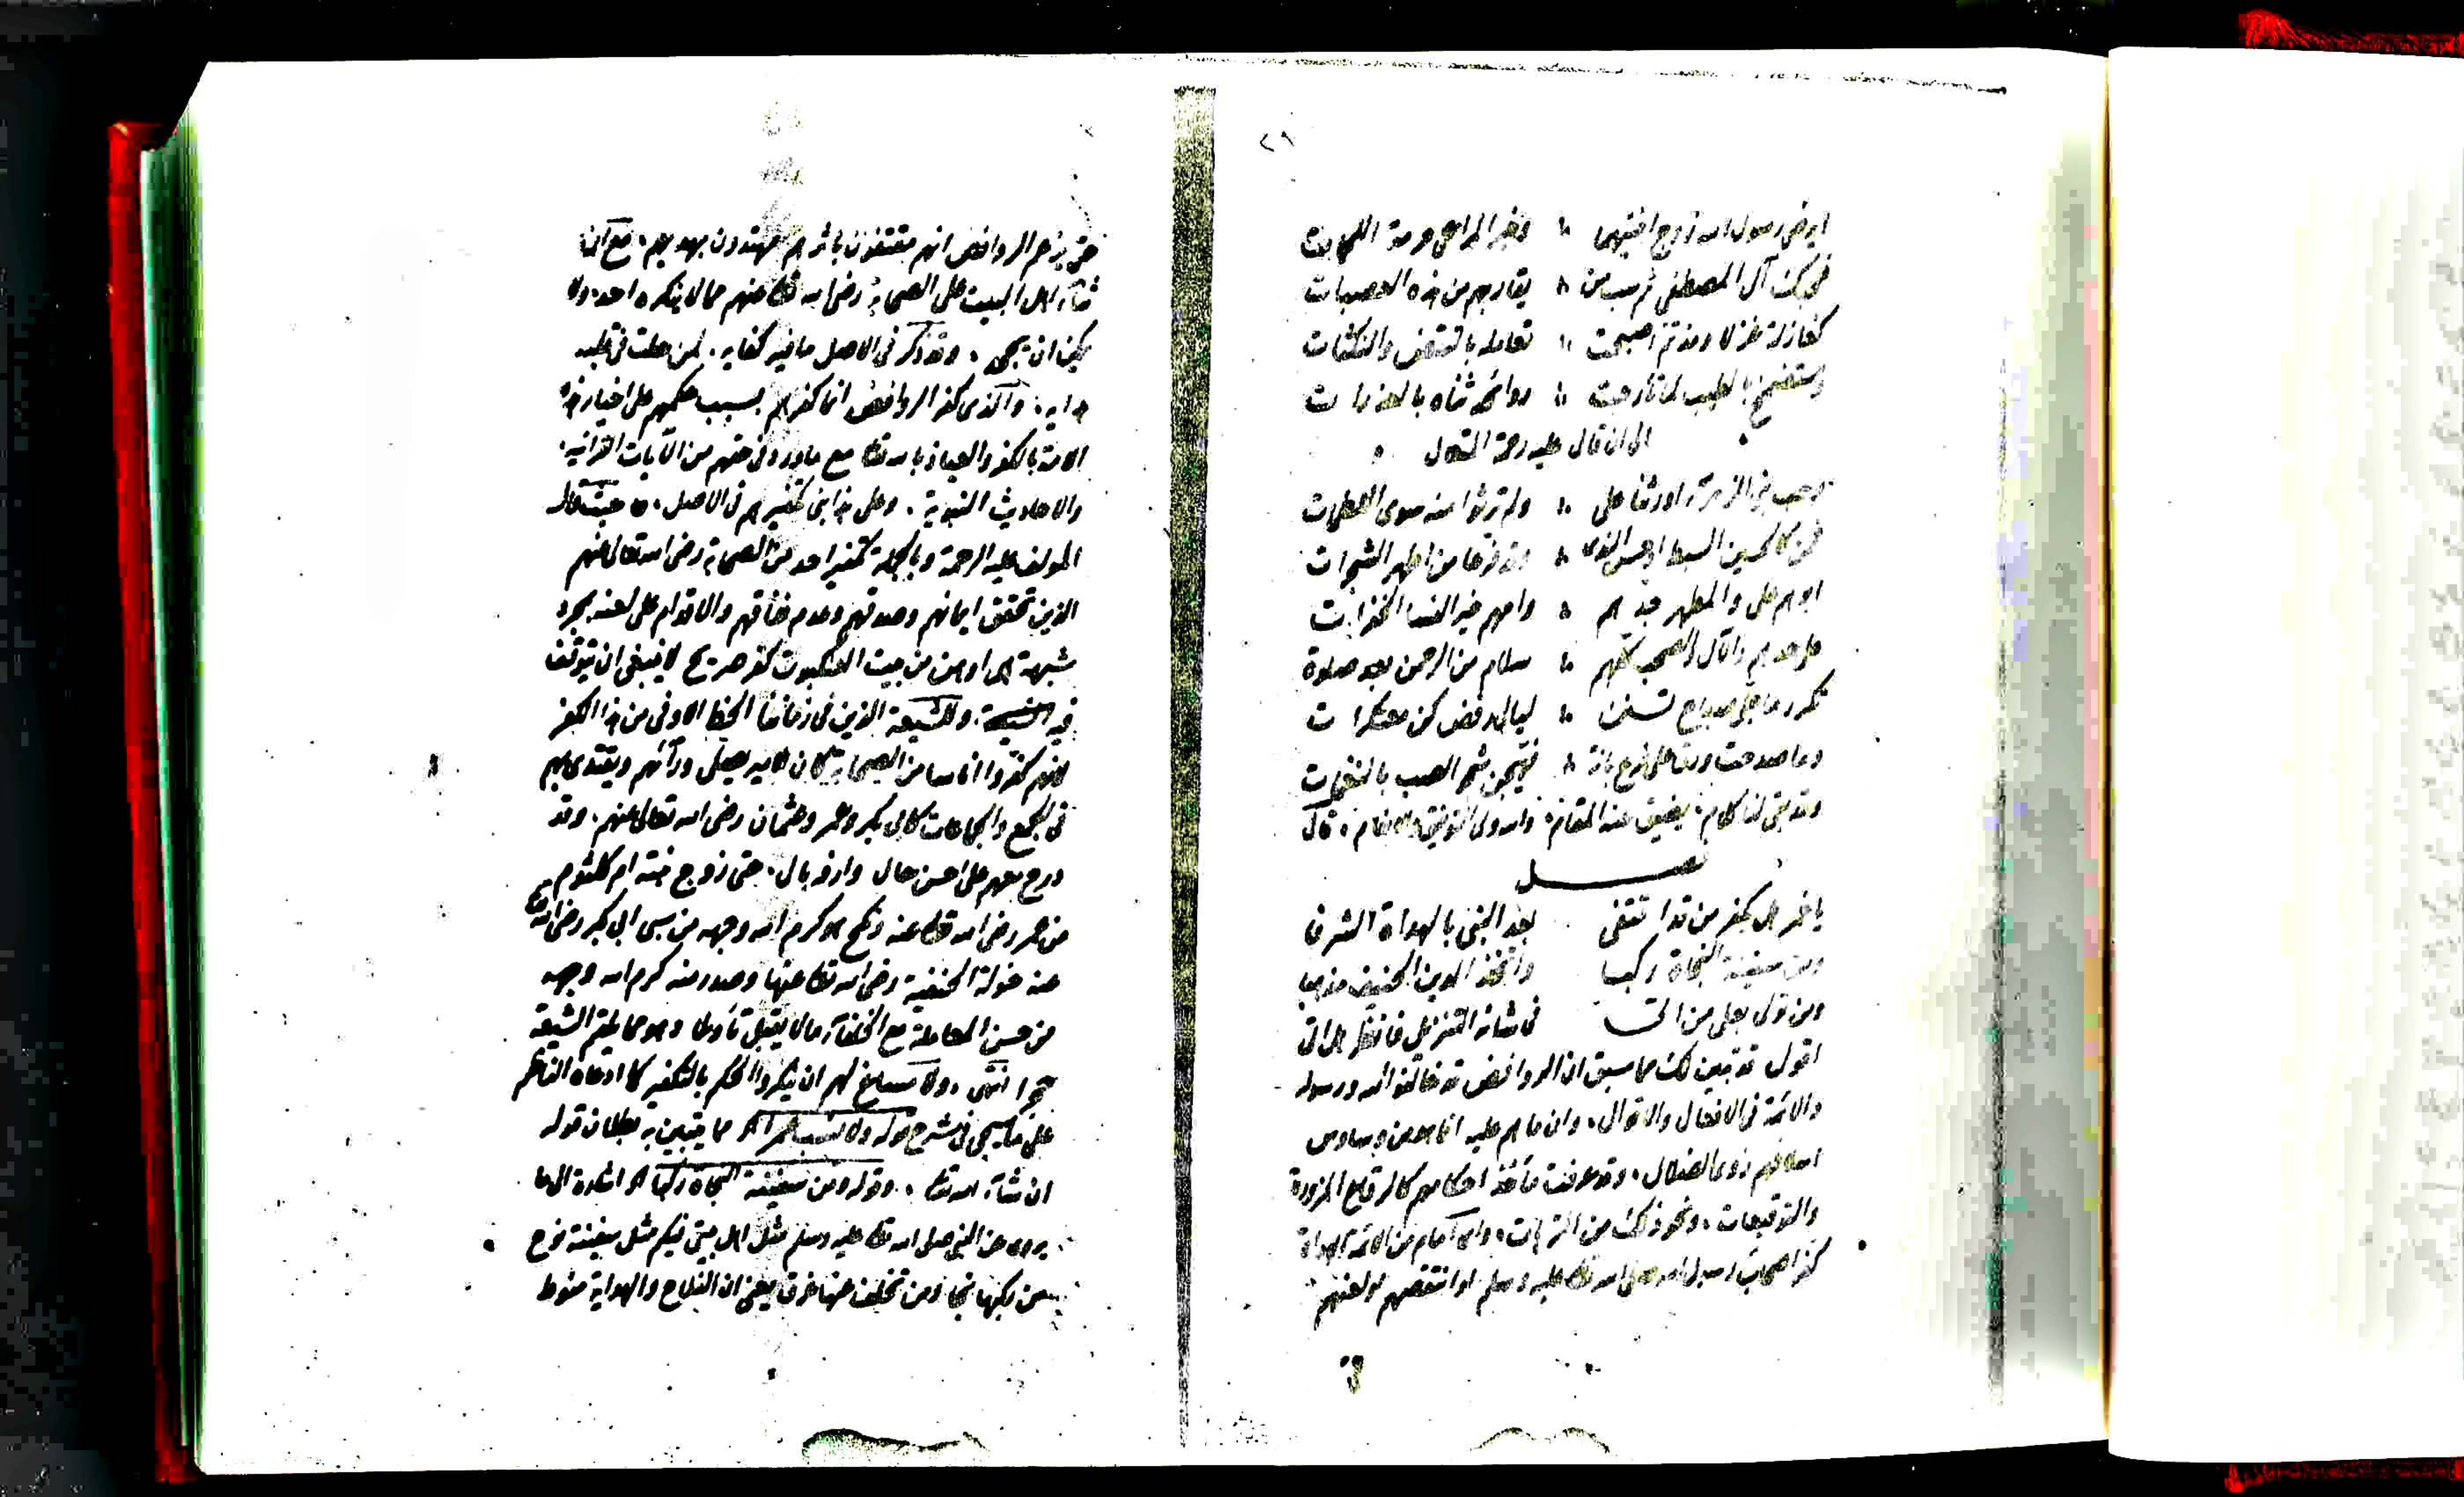 ٢٩
ايرضى رسول الله زوج ابنتيهما وخير المراعي حرمة
فمن كان آل المصطفى ثم سب من يقاربهم من هذه العصبات
كغازلة غزلا ومذ تم اصبحت تعامله بالنقض والنكثات
بالطيب لما تأرجت روائحه بالعذرات
الى ان قال عليه رحمة المتعال
بني الزهراء اورثنا علي ولم ترثوا منه سوى
فمن كالحسين السبط او حسن الندى وقد فرعا من اطهر الشجرات
ابوهم علي والمطهر جدهم وامهم خير النسا الخفرات
على جدهم والآل والصحب كلهم سلام من الرحمن بعد صلاة
تكرر ما جلى صباح ليالي رفض كن معتكرات
وما صدحت ورقا على فرع بانة فهيجن شجو الصب بالنغمات
وقد بقى لنا كلام يضيق عنه المقام والله ولي التوفيق والانعام قال
فصل
يا عمر هل يكفر من قد اقتفى بعد النبي بالهداة الشرفا
ومن سفينة النجاة ركبا واتخذ الدين الحنيف مذهبا
ومن تولى بعلي من اتى في شانه التنزيل فانظر هل اتى
اقول قد تبين لك مما سبق ان الروافض قد خالفوا الله ورسوله
والائمة في الافعال والاقوال وان ما هم عليه انما هو من وساوس
اسلافهم ذوى الضلال وقد عرفت مآخذ احكامهم كالرقاع المزورة
والتوقيعات ونحو ذلك من الترهات من الائمة الهداة
كفر اصحاب رسول الله صلى الله تعالى عليه وسلم او انتقصهم او لعنهم
حتى يزعم الروافض انهم مقتفون باثرهم مهتدون بهديهم مع ان
ثناء اهل البيت على الصحابة رضى الله تعالى عنهم مما لا ينكره احد ولا
يمكن ان وقد ذكر في الاصل ما فيه كفاية لمن حلت في قلبه
هداية والذي كفر الروافض انما كفرهم بسبب حكمهم على اخيار هذه
الامة بالكفر والعياذ بالله تعالى مع ما ورد في حقهم من الآيات القرانية
والاحاديث النبوية وعلى هذا ابنى تكفيرهم في الاصل حيث قال
المولف عليه الرحمة وبالجملة تكفير احد من الصحابة رضى الله تعالى عنهم
الذين تحقق ايمانهم وصدقهم وعدم نفاقهم والاقدام على لعنه بمجرد
شبهة هي اوهن من بيت العنكبوت كفر صريح لا ينبغي ان يتوقف
فيه وللشيعة الذين في زماننا الحظ الاوفى من هذا الكفر
لانهم كفروا اناسا من الصحابة كان الامير يصلى ورآئهم ويقتدى بهم
في الجمع والجماعات كابى بكر وعمر وعثمان رضى الله تعالى عنهم وقد
درج معهم على احسن حال وارفه بال حتى زوج بنته ام كلثوم
من عمر رضى الله تعالى عنه ونكح هو كرم الله وجهه من سبى ابى بكر رضى الله تعالى
عنه خولة الحنفية رضى الله تعالى عنها وصدر منه كرم الله وجهه
من حسن المعاملة مع الخلفاء ما لا يقبل تأويلا وهو مما يلقم الشيعة
حجرا انتهى ولا مساغ لهم ان ينكروا الحكم بالتكفير كما ادعاه الناظم
على ما سيجى في شرح قوله مما يتبين به بطلان قوله
ان شاء الله تعالى وقوله ومن سفينة النجاة ركبا الخ اشارة الى ما
يروى عن النبى صلى الله تعالى عليه وسلم مثل اهل بيتى فيكم مثل سفينة نوح
من ركبها نجا ومن تخلف عنها غرق يعنى ان الفلاح والهداية منوط